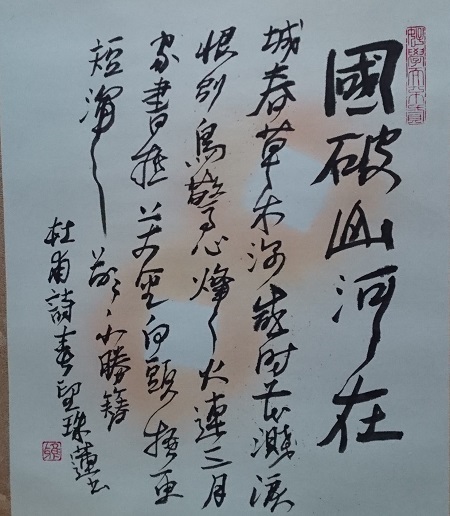 國破山河在
城春草木深感時花濺淚
恨別鳥驚心烽火連三月
家書抵萬金白頭搔更
短渾欲不勝簪
杜甫詩春望珠蓮书